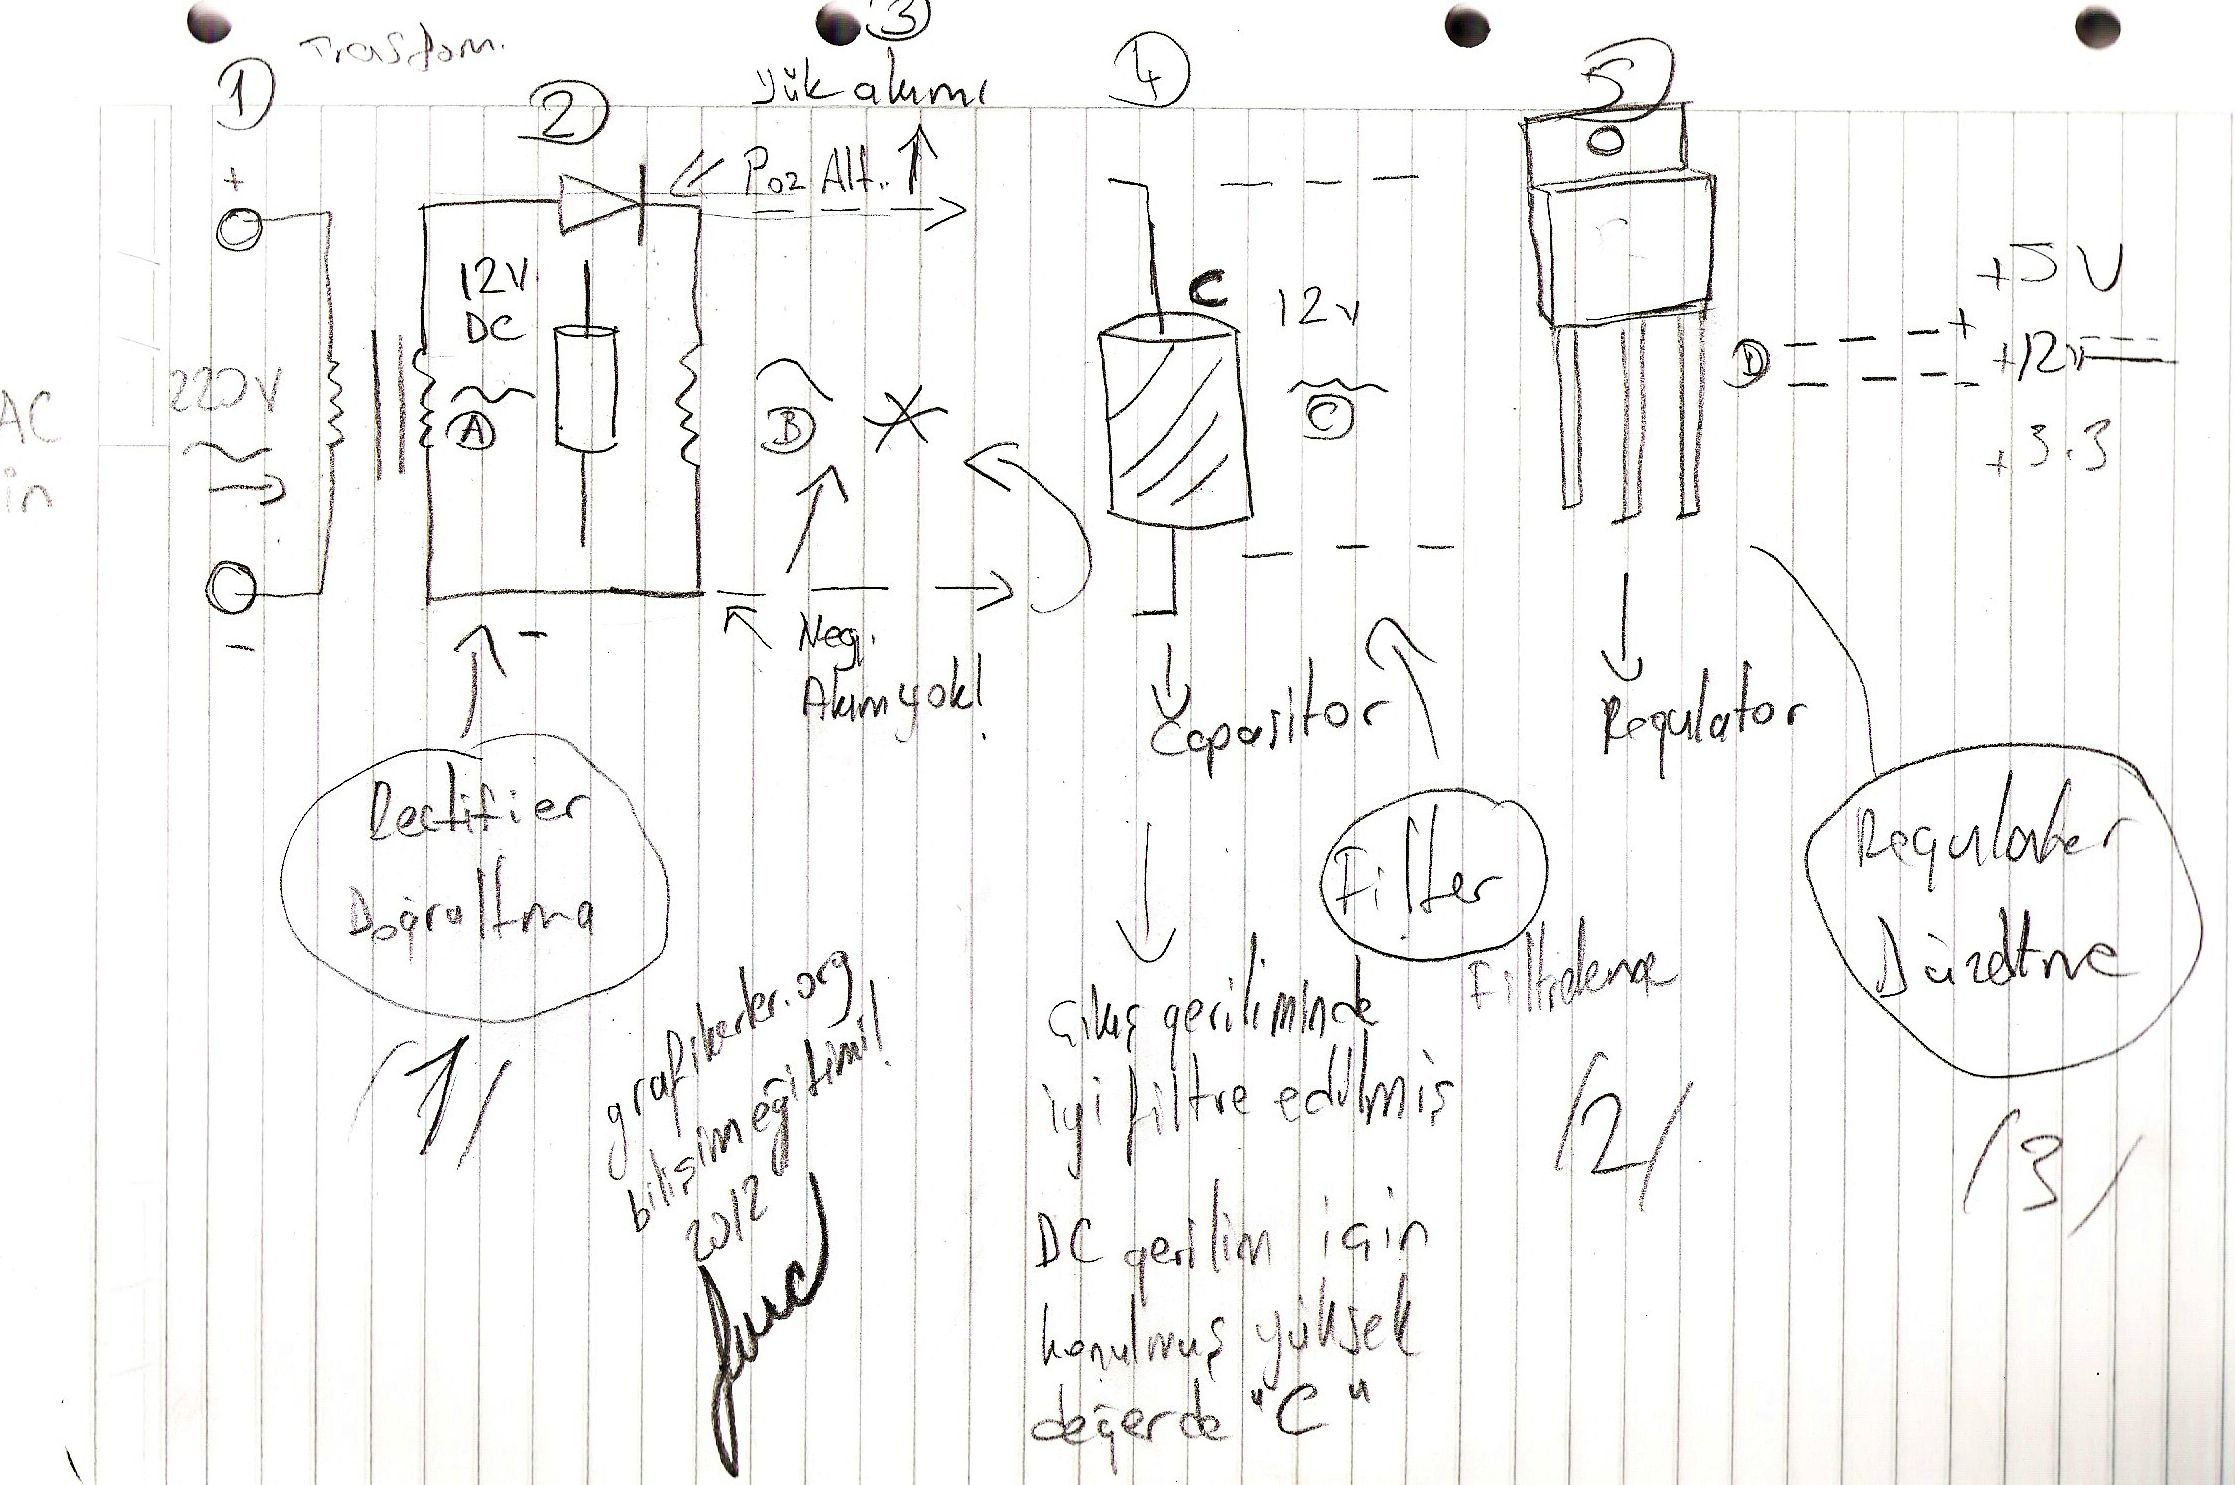 Trasform.
1
2
3
Yük akımı
4
5
+
Poz Alt.
12V
DC
A
220V
AC
in
-
B
C
12v
C
D
+
-
+5V
+12v
+3.3
-
Neg.
Akım yok!
Capasitor
Regulator
Rectifier
Doğroltma
/1/
Filter
Filtreleme
/2/
Regulater
Düzeltme
/3/
Çıkış geriliminde
iyi filtre edilmiş
DC gerilim için
konulmuş yüksek
değerde "C"
grafikerler.org
bilişim eğitimi!
2012